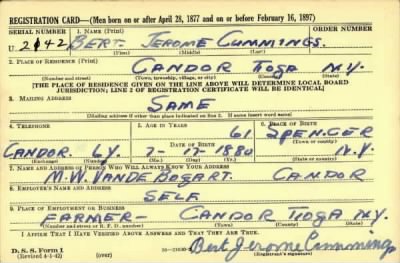 REGISTRATION CARD—(Men born on or after April 28, 1877 and on or before February 16, 1897)
SERIAL NUMBER 1. NAME (Print) ORDER NUMBER
U. 2142 BERT. JEROME CUMMINGS.
(First) (Middle) (Last)
2. PLACE OF RESIDENCE (Print)
CANDOR TIOGA N.Y.
(Number and street) (Town, township, village, or city) (County) (State)
[THE PLACE OF RESIDENCE GIVEN ON THE LINE ABOVE WILL DETERMINE LOCAL BOARD
JURISDICTION; LINE 2 OF REGISTRATION CERTIFICATE WILL BE IDENTICAL]
3. MAILING ADDRESS
SAME
[Mailing address if other than place indicated on line 2. If same insert word same]
4. TELEPHONE 5. AGE IN YEARS 6. PLACE OF BIRTH
61 SPENCER
DATE OF BIRTH (Town or county)
CANDOR 6Y. 7-17-1880 N.Y.
(Exchange) (Number) (Mo.) (Day) (Yr.) (State or country)
7. NAME AND ADDRESS OF PERSON WHO WILL ALWAYS KNOW YOUR ADDRESS
M.W. VANDE BOGART. CANDOR
8. EMPLOYER'S NAME AND ADDRESS
SELF
9. PLACE OF EMPLOYMENT OR BUSINESS
FARMER— CANDOR TIOGA N.Y.
(Number and street or R. F. D. number) (Town) (County) (State)
I AFFIRM THAT I HAVE VERIFIED ABOVE ANSWERS AND THAT THEY ARE TRUE.
D. S. S. Form 1 Bert Jerome Cummings
(Revised 4-1-42) (over) (Registrant's signature)